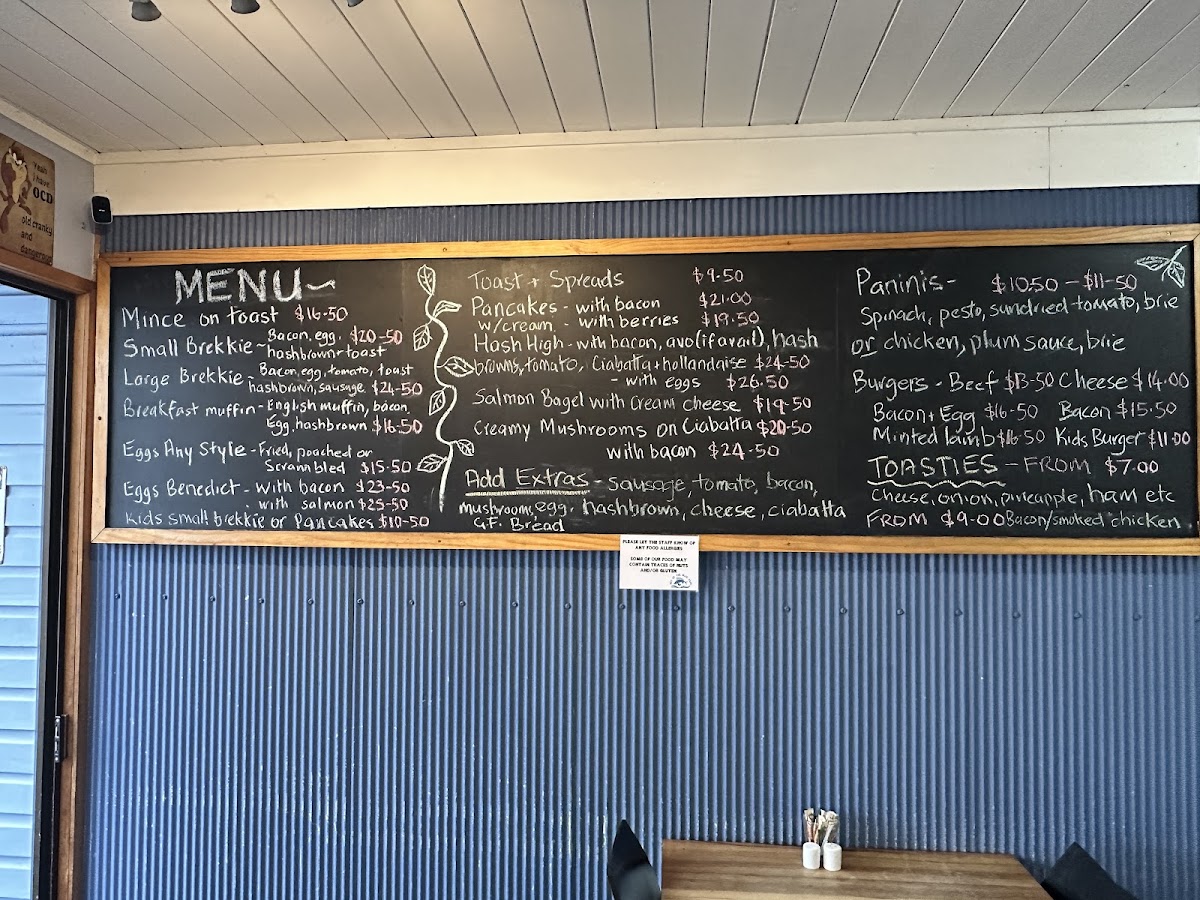 Yeah
I have
OCD
old cranky
and
dangerous
MENU
Mince on toast $16-50
Small Brekkie - Bacon, egg, $20-50
hashbrown + toast
Large Brekkie - Bacon, egg, tomato, toast
hashbrown, sausage $24-50
Breakfast muffin - English muffin, bacon
Egg, hashbrown $16-50
Eggs Any Style - Fried, poached or
Scrambled $15-50
Eggs Benedict - with bacon $23-50
- with salmon $25-50
Kids small brekkie or Pancakes $10-50
Toast + Spreads $9-50
Pancakes - with bacon $21-00
w/cream - with berries $19-50
Hash High - with bacon, avo (if avail), hash
browns, tomato, Ciabatta + hollandaise $24-50
- with eggs $26.50
Salmon Bagel with Cream cheese $19-50
Creamy Mushrooms on Ciabatta $20-50
with bacon $24-50
Add Extras - sausage, tomato, bacon,
mushrooms, egg, hashbrown, cheese, ciabatta
G.F. Bread
Paninis - $10.50 - $11-50
Spinach, pesto, sundried tomato, brie
or chicken, plum sauce, brie
Burgers - Beef $13-50 Cheese $14.00
Bacon + Egg $16-50 Bacon $15.50
Minted lamb $16-50 Kids Burger $11.00
TOASTIES - FROM $7.00
Cheese, onion, pineapple, ham etc
FROM $9-00 Bacon/smoked chicken
PLEASE LET THE STAFF KNOW OF
ANY FOOD ALLERGIES
SOME OF OUR FOOD MAY
CONTAIN TRACES OF NUTS
AND/OR GLUTEN